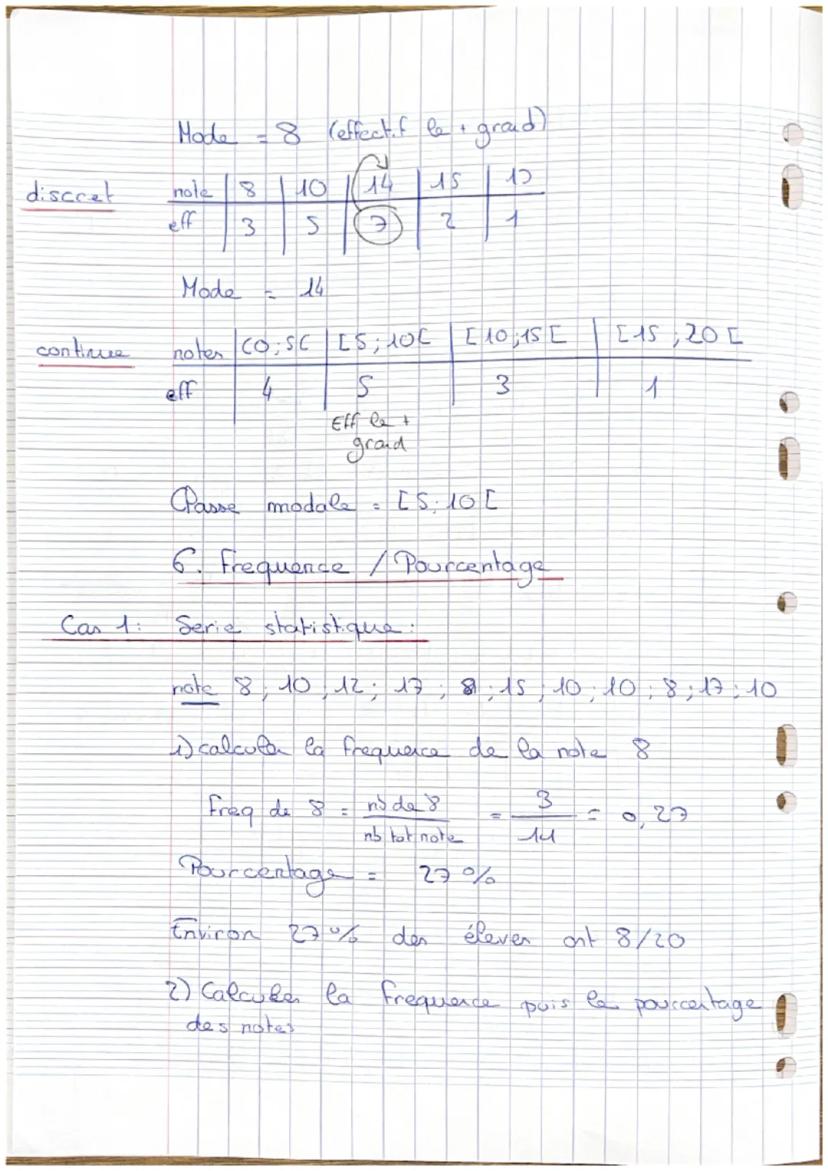 Mode = 8 (effectif le + grand)
discret note 8 10 14 15 17
eff 3 5 7 2 1
Mode = 14
continue notes [0;5[ [5;10[ [10;15[ [15;20[
eff 4 5 3 1
Eff le +
grand
Classe modale = [5;10[
6. Frequence / Pourcentage
Cas 1: Serie statistique:
note 8; 10; 12; 17; 8; 15; 10; 10; 8; 17; 10
1) calculer la frequence de la note 8
Freq de 8 = nb de 8 / nb tot note = 3/11 = 0,27
Pourcentage = 27%
Environ 27% des élèves ont 8/20
2) Calculer la frequence puis le pourcentage
des notes